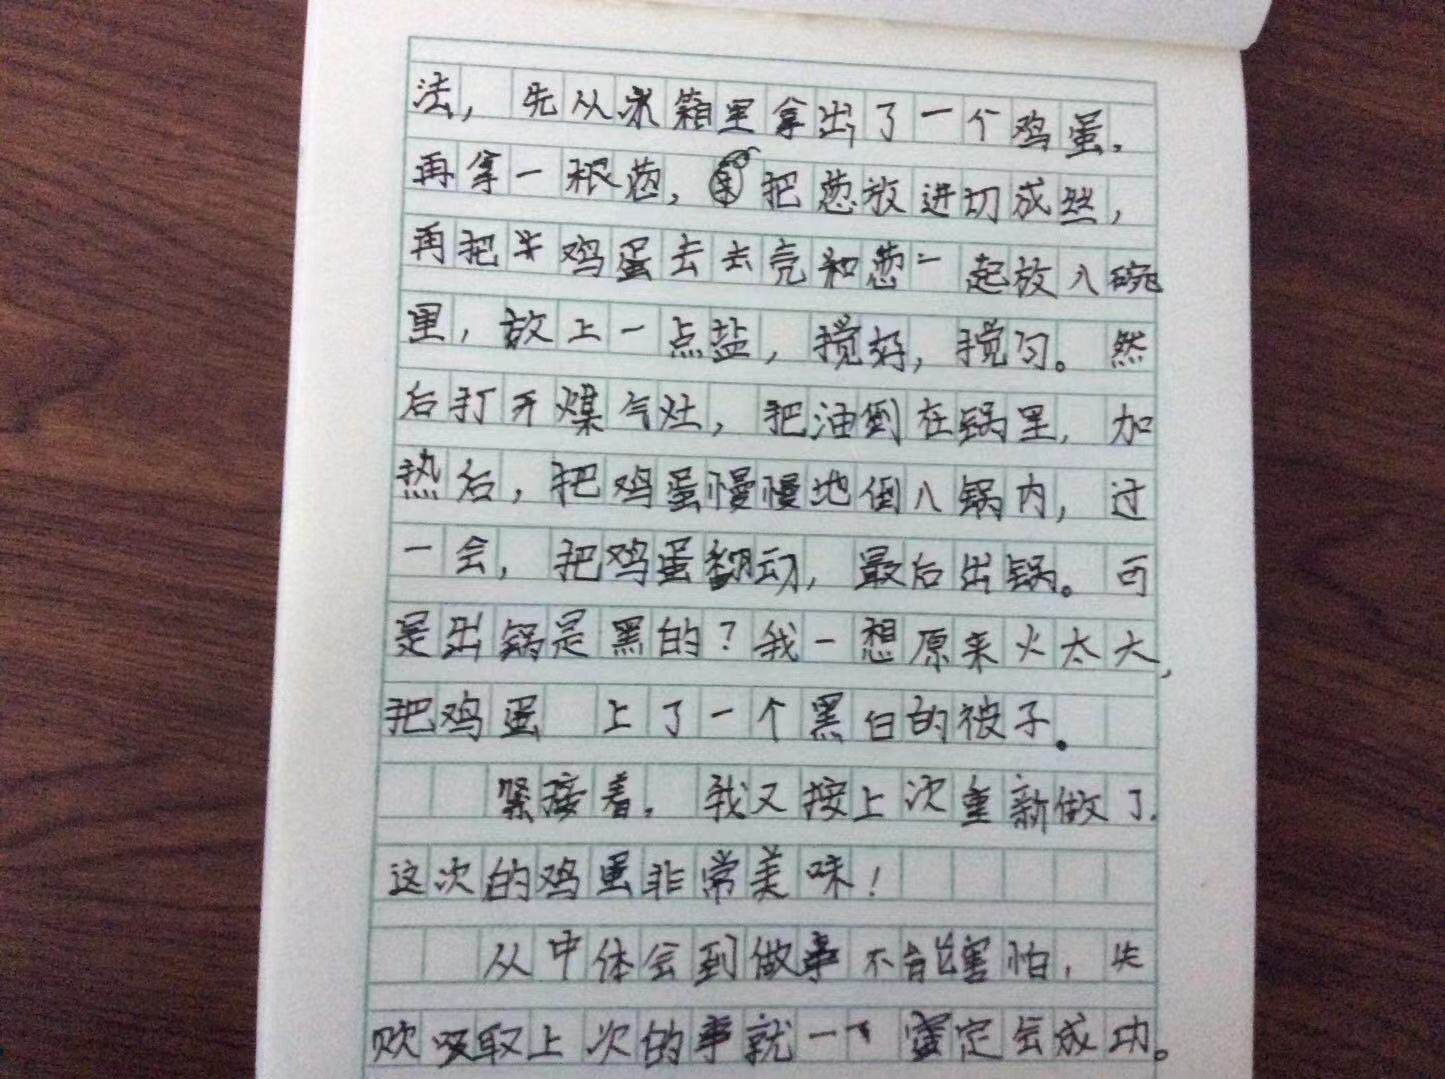 法，先从冰箱里拿出了一个鸡蛋。
再拿一根葱，把葱放进切成丝，
再把鸡蛋去去壳和葱一起放入碗
里，放上一点盐，搅好，搅匀。然
后打开煤气灶，把油倒在锅里，加
热后，把鸡蛋慢慢地倒入锅内，过
一会，把鸡蛋翻动，最后出锅。可
是出锅是黑的？我一想原来火太大，
把鸡蛋 上了一个黑白的被子。
紧接着，我又按上次重新做了.
这次的鸡蛋非常美味！
从中体会到做事不能害怕，失
败吸取上次的事就一 定会成功。